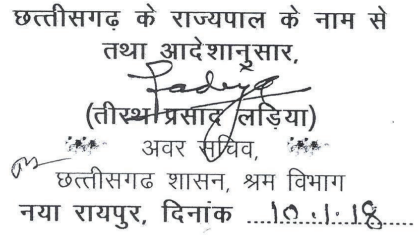 छत्तीसगढ़ के राज्यपाल के नाम से
तथा आदेशानुसार,
(तीरथ प्रसाद लड़िया)
अवर सचिव,
छत्तीसगढ शासन, श्रम विभाग
नया रायपुर, दिनांक ....10.1.18....